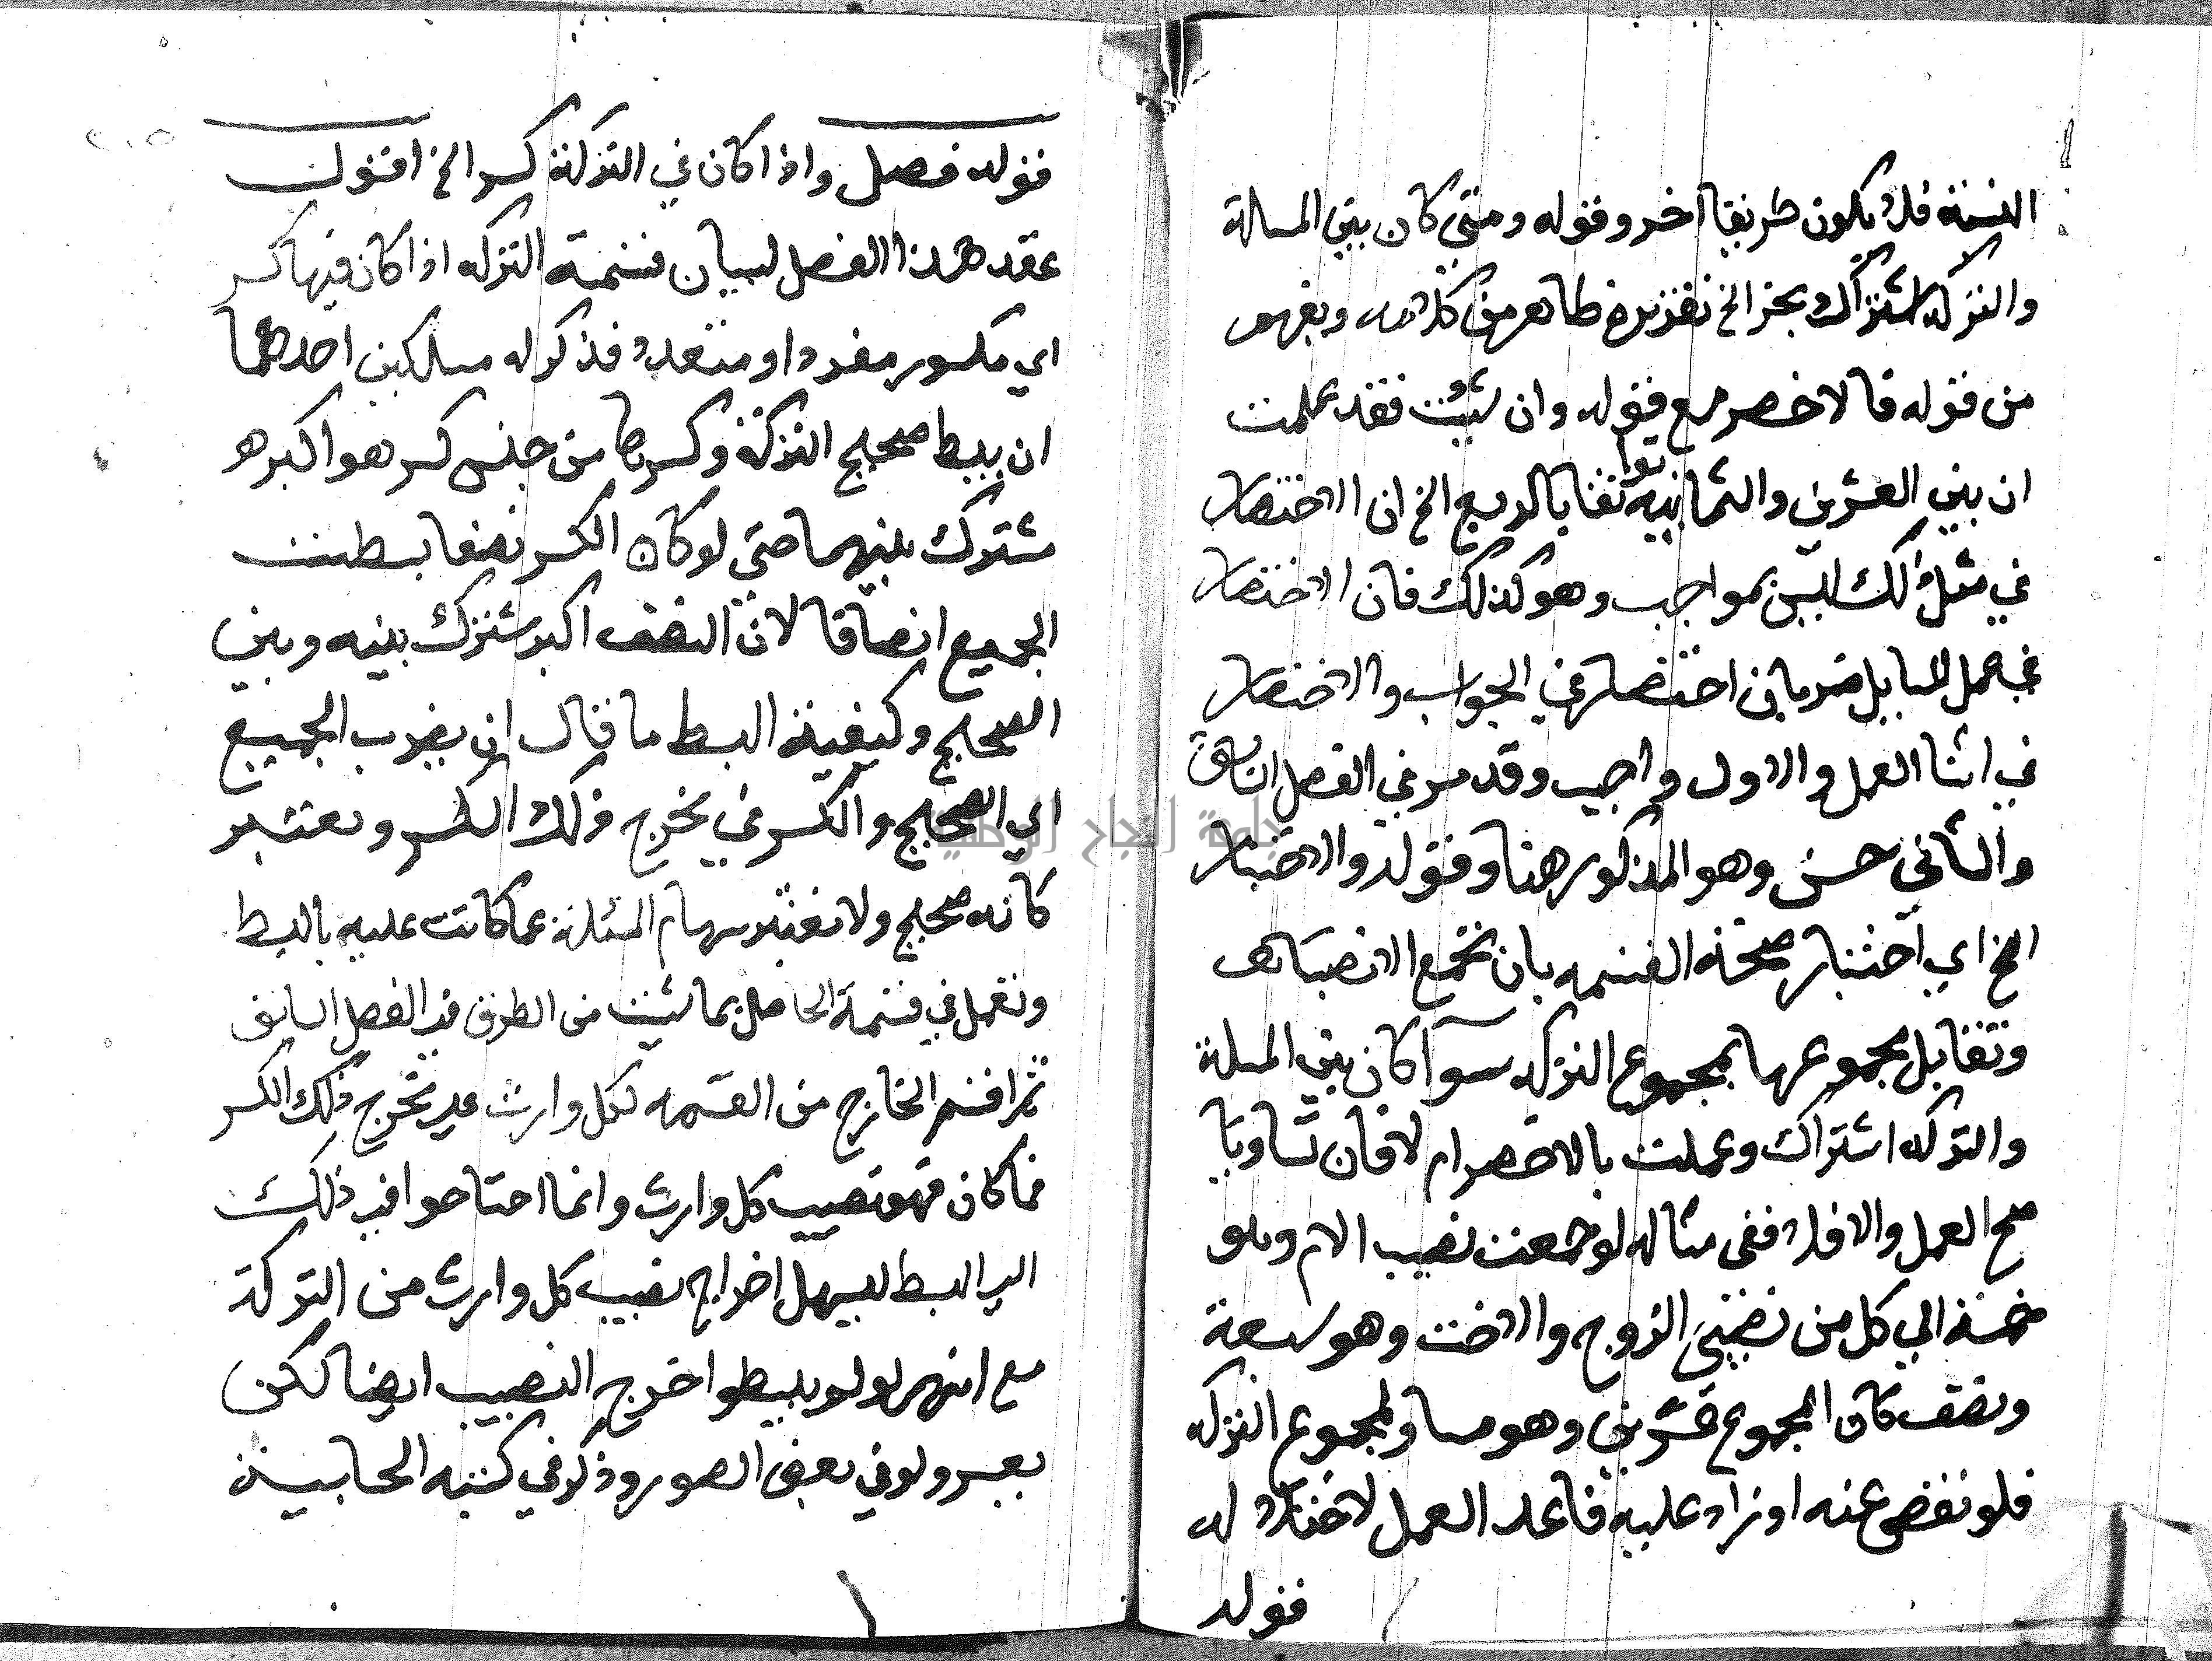 النسبة فلا يكون طريقا اخر وقوله ومتى كان بين المسالة
والتركة اشتراك بجز الخ تقريره ظاهر من كلامه ويفهم
من قوله فالاخصر مع قوله وان شئت فقد عملت
ان بين العشرين والثمانية توافقا بالربع الخ ان الاختصار
في مثل ذلك ليس بمواجب وهو كذلك فان الاختصار
في عمل المسايل ضربان اختصار في الجواب والاختصار
في اثنا العمل والاول واجب وقد مر في الفصل السابق
والثاني حسن وهو المذكور هنا وقوله والاختبار
الخ اي اختبار صحة القسمه بان تجمع الانصباء
وتقابل بمجموعها بمجموع التركه سوآ كان بين المسلة
والتركه اشتراك وعملت بالاخصر ام لا فان تساويا
صح العمل والا فلا ففى مثاله لو جمعت نصيب الام وهو
خمسة الي كل من نصيبي الزوج والاخت وهو سبعة
ونصف كان المجموع عشرين وهو مساو لمجموع التركه
فلو نقص عنه او زاد عليه فاعد العمل لاختلاله
قوله
قوله فصل واذا كان في التركة كسر الخ اقول
عقد هذا الفصل لبيان قسمة التركه اذا كان فيها كسر
اي مكسور مفرد او متعدد فذكر له مسلكين احدهما
ان يبسط صحيح التركة وكسرها من جنس كسر هو اكبر هو
مشترك بينهما حتي لو كان الكسر نصفا بسطت
الجميع انصافا لان النصف اكبر مشترك بينه وبين
الصحيح وكيفية البسط ما قال ان يضرب الجميع
اي الصحيح والكسر في مخرج ذلك الكسر ويعتبر
كانه صحيح ولا تغير سهام المسئلة عما كانت عليه بالبسط
وتعمل في قسمة الحاصل بما شئت من الطرق في الفصل السابق
ثم اقسم الخارج من القسمه لكل وارث علي مخرج ذلك الكسر
فما كان فهو نصيب كل وارث وانما احتاجوا في ذلك
الي البسط ليسهل اخراج نصيب كل وارث من التركة
مع انهم لو لم يبسطوا خرج النصيب ايضا لكن
بعسر ولو في بعض الصور وذكر في كتبه الحسابية